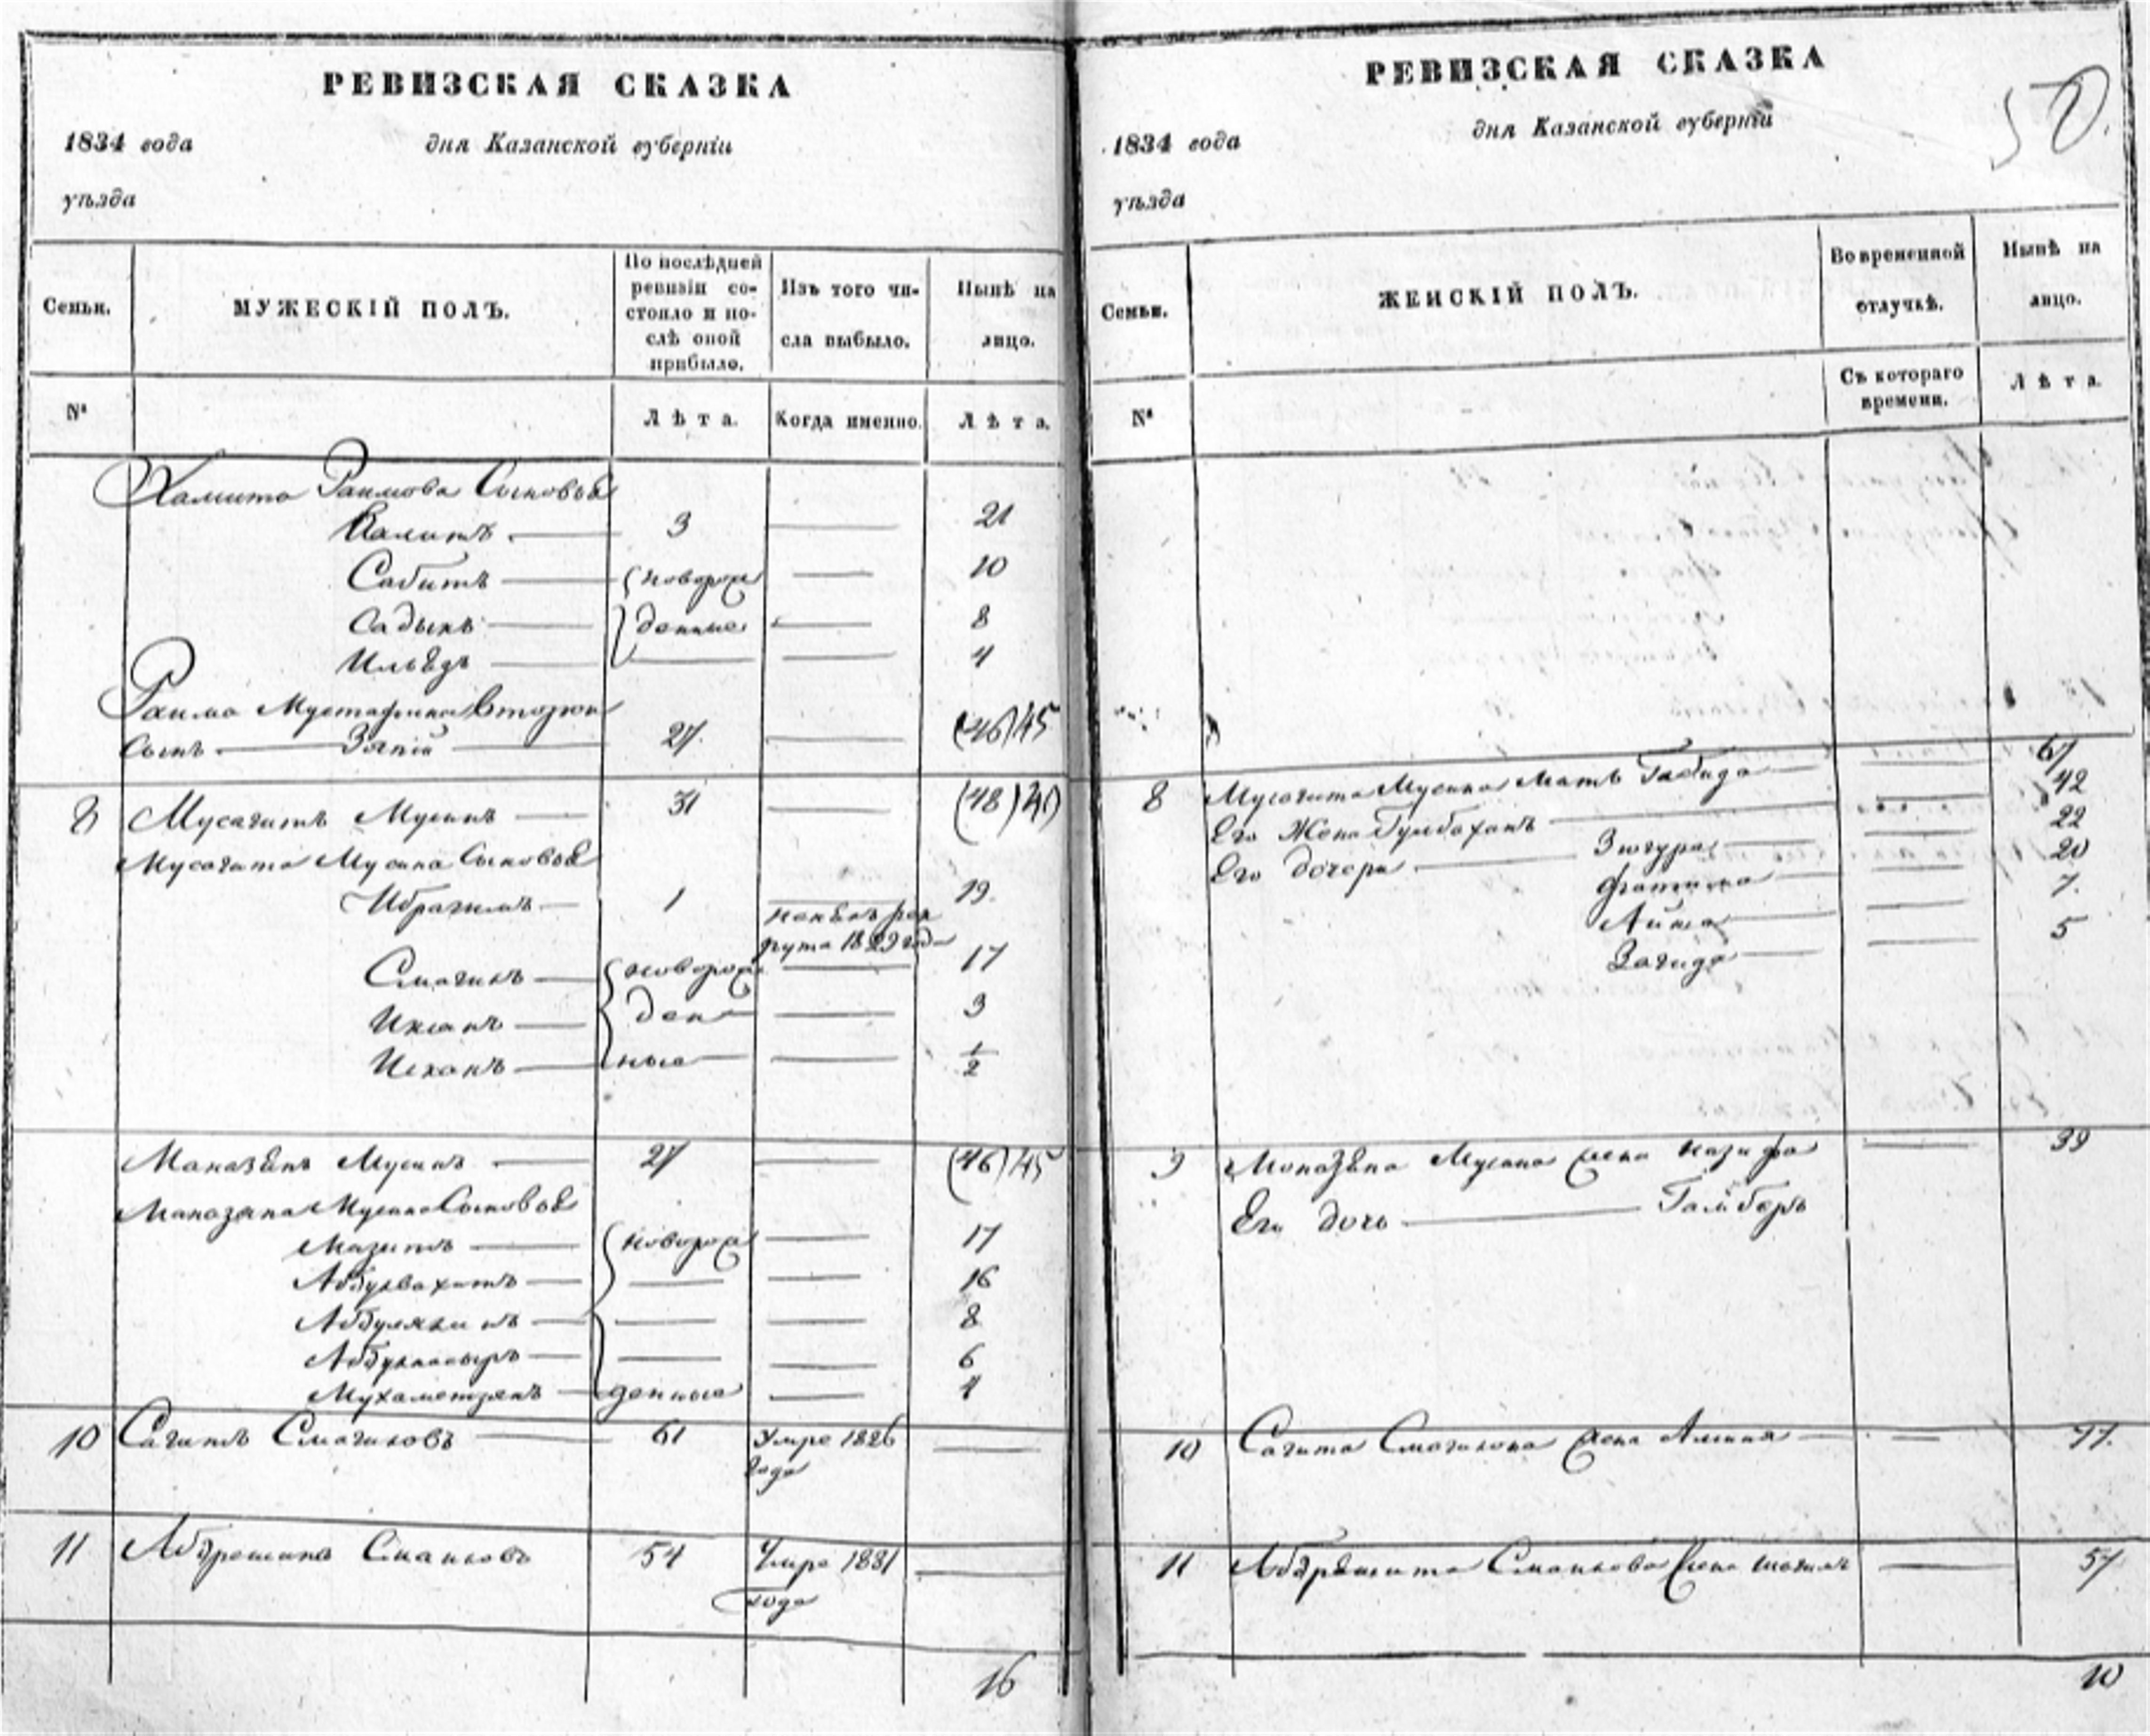 РЕВИЗСКАЯ СКАЗКА
1834 года дня Казанской губерніи
уѣзда
Семьи. МУЖЕСКІЙ ПОЛЪ. По послѣдней ревизіи состояло и послѣ оной прибыло. Изъ того числа выбыло. Нынѣ на лицо.
№ Лѣта. Когда именно. Лѣта.
Хамита Раимова Сыновья
Валитъ 3 21
Сабитъ новорож 10
Садыкъ денные 8
Ильязъ 4
Раима Мустафина второй
сынъ 27 (46) 45
8 Мусагитъ Мусинъ 31 (48)
Мусагита Мусина Сыновья
Ибрагимъ 1 рек 19
рута 1829 год
Смагилъ новорож 17
Ихсанъ ден 3
Исханъ ные 1/2
Маназѣпъ Мусинъ 27 (46) 45
Мусина Сыновья
Мазитъ новорож 17
Абдулвахитъ 16
8
Абдулнасыръ 6
Мухаметзянъ денные 4
10 Сагитъ Смагиловъ 61 Умре 1826
года
11 54 Умре 1831
года
16
РЕВИЗСКАЯ СКАЗКА
50.
1834 года дня Казанской губерніи
уѣзда
Семьи. ЖЕНСКІЙ ПОЛЪ. Во временной отлучкѣ. Нынѣ на лицо.
№ Съ котораго времени. Лѣта.
8 Мусагита Мусина Мать Габида 67
Его Жена 42
Его дочери Зюгура 22
Фатима 20
7.
Загида 5
9 Мусина жена Назифа 39
Его дочь
10 Сагита Смагилова жена 77.
11 жена 57
10